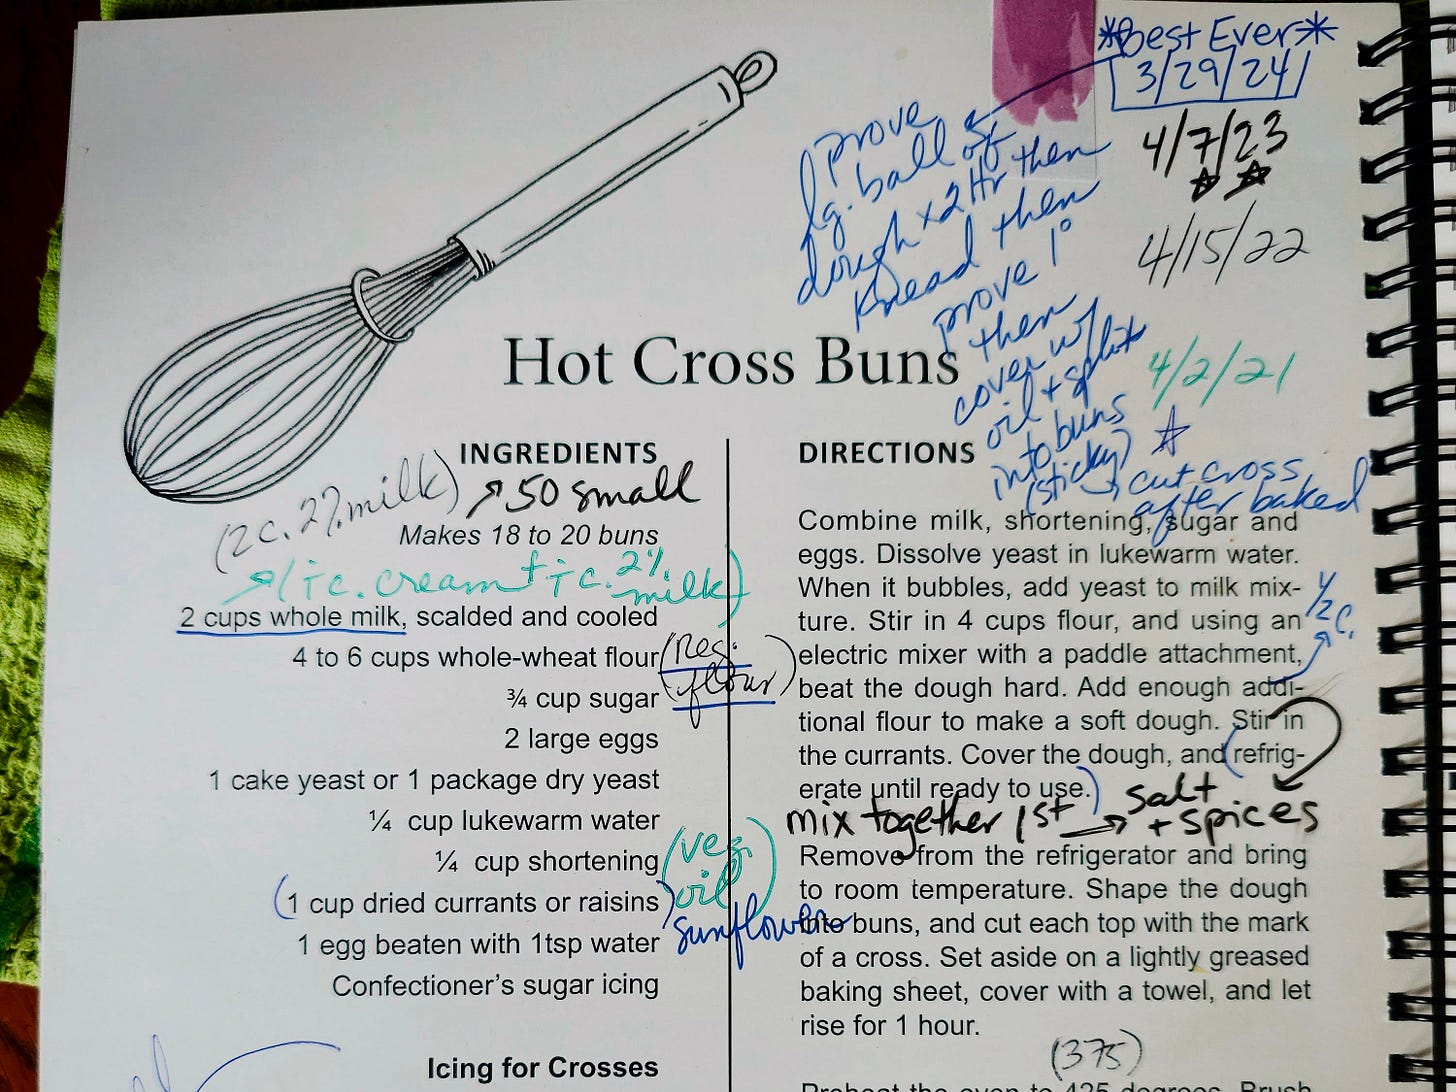 *Best Ever*
3/29/24
4/7/23
4/15/22
4/2/21
prove
lg. ball of
dough x 2 Hr then
Knead then
prove 1°
then
cover w/
oil + split
into buns
(sticky)
cut cross
after baked
Hot Cross Buns
INGREDIENTS
(2 c. 2% milk)
50 small
Makes 18 to 20 buns
(1 c. cream + 1 c. 2% milk)
2 cups whole milk, scalded and cooled
4 to 6 cups whole-wheat flour
(Reg. flour)
¾ cup sugar
2 large eggs
1 cake yeast or 1 package dry yeast
¼ cup lukewarm water
¼ cup shortening
(veg. oil)
(1 cup dried currants or raisins)
sunflower
1 egg beaten with 1tsp water
Confectioner's sugar icing
Icing for Crosses
DIRECTIONS
Combine milk, shortening, sugar and
eggs. Dissolve yeast in lukewarm water.
When it bubbles, add yeast to milk mix-
ture. Stir in 4 cups flour, and using an
electric mixer with a paddle attachment,
½ c.
beat the dough hard. Add enough addi-
tional flour to make a soft dough. Stir in
the currants. Cover the dough, and (refrig-
erate until ready to use.)
mix together 1st → salt + spices
Remove from the refrigerator and bring
to room temperature. Shape the dough
into buns, and cut each top with the mark
of a cross. Set aside on a lightly greased
baking sheet, cover with a towel, and let
rise for 1 hour.
(375)
Preheat the oven to 425 degrees. Brush